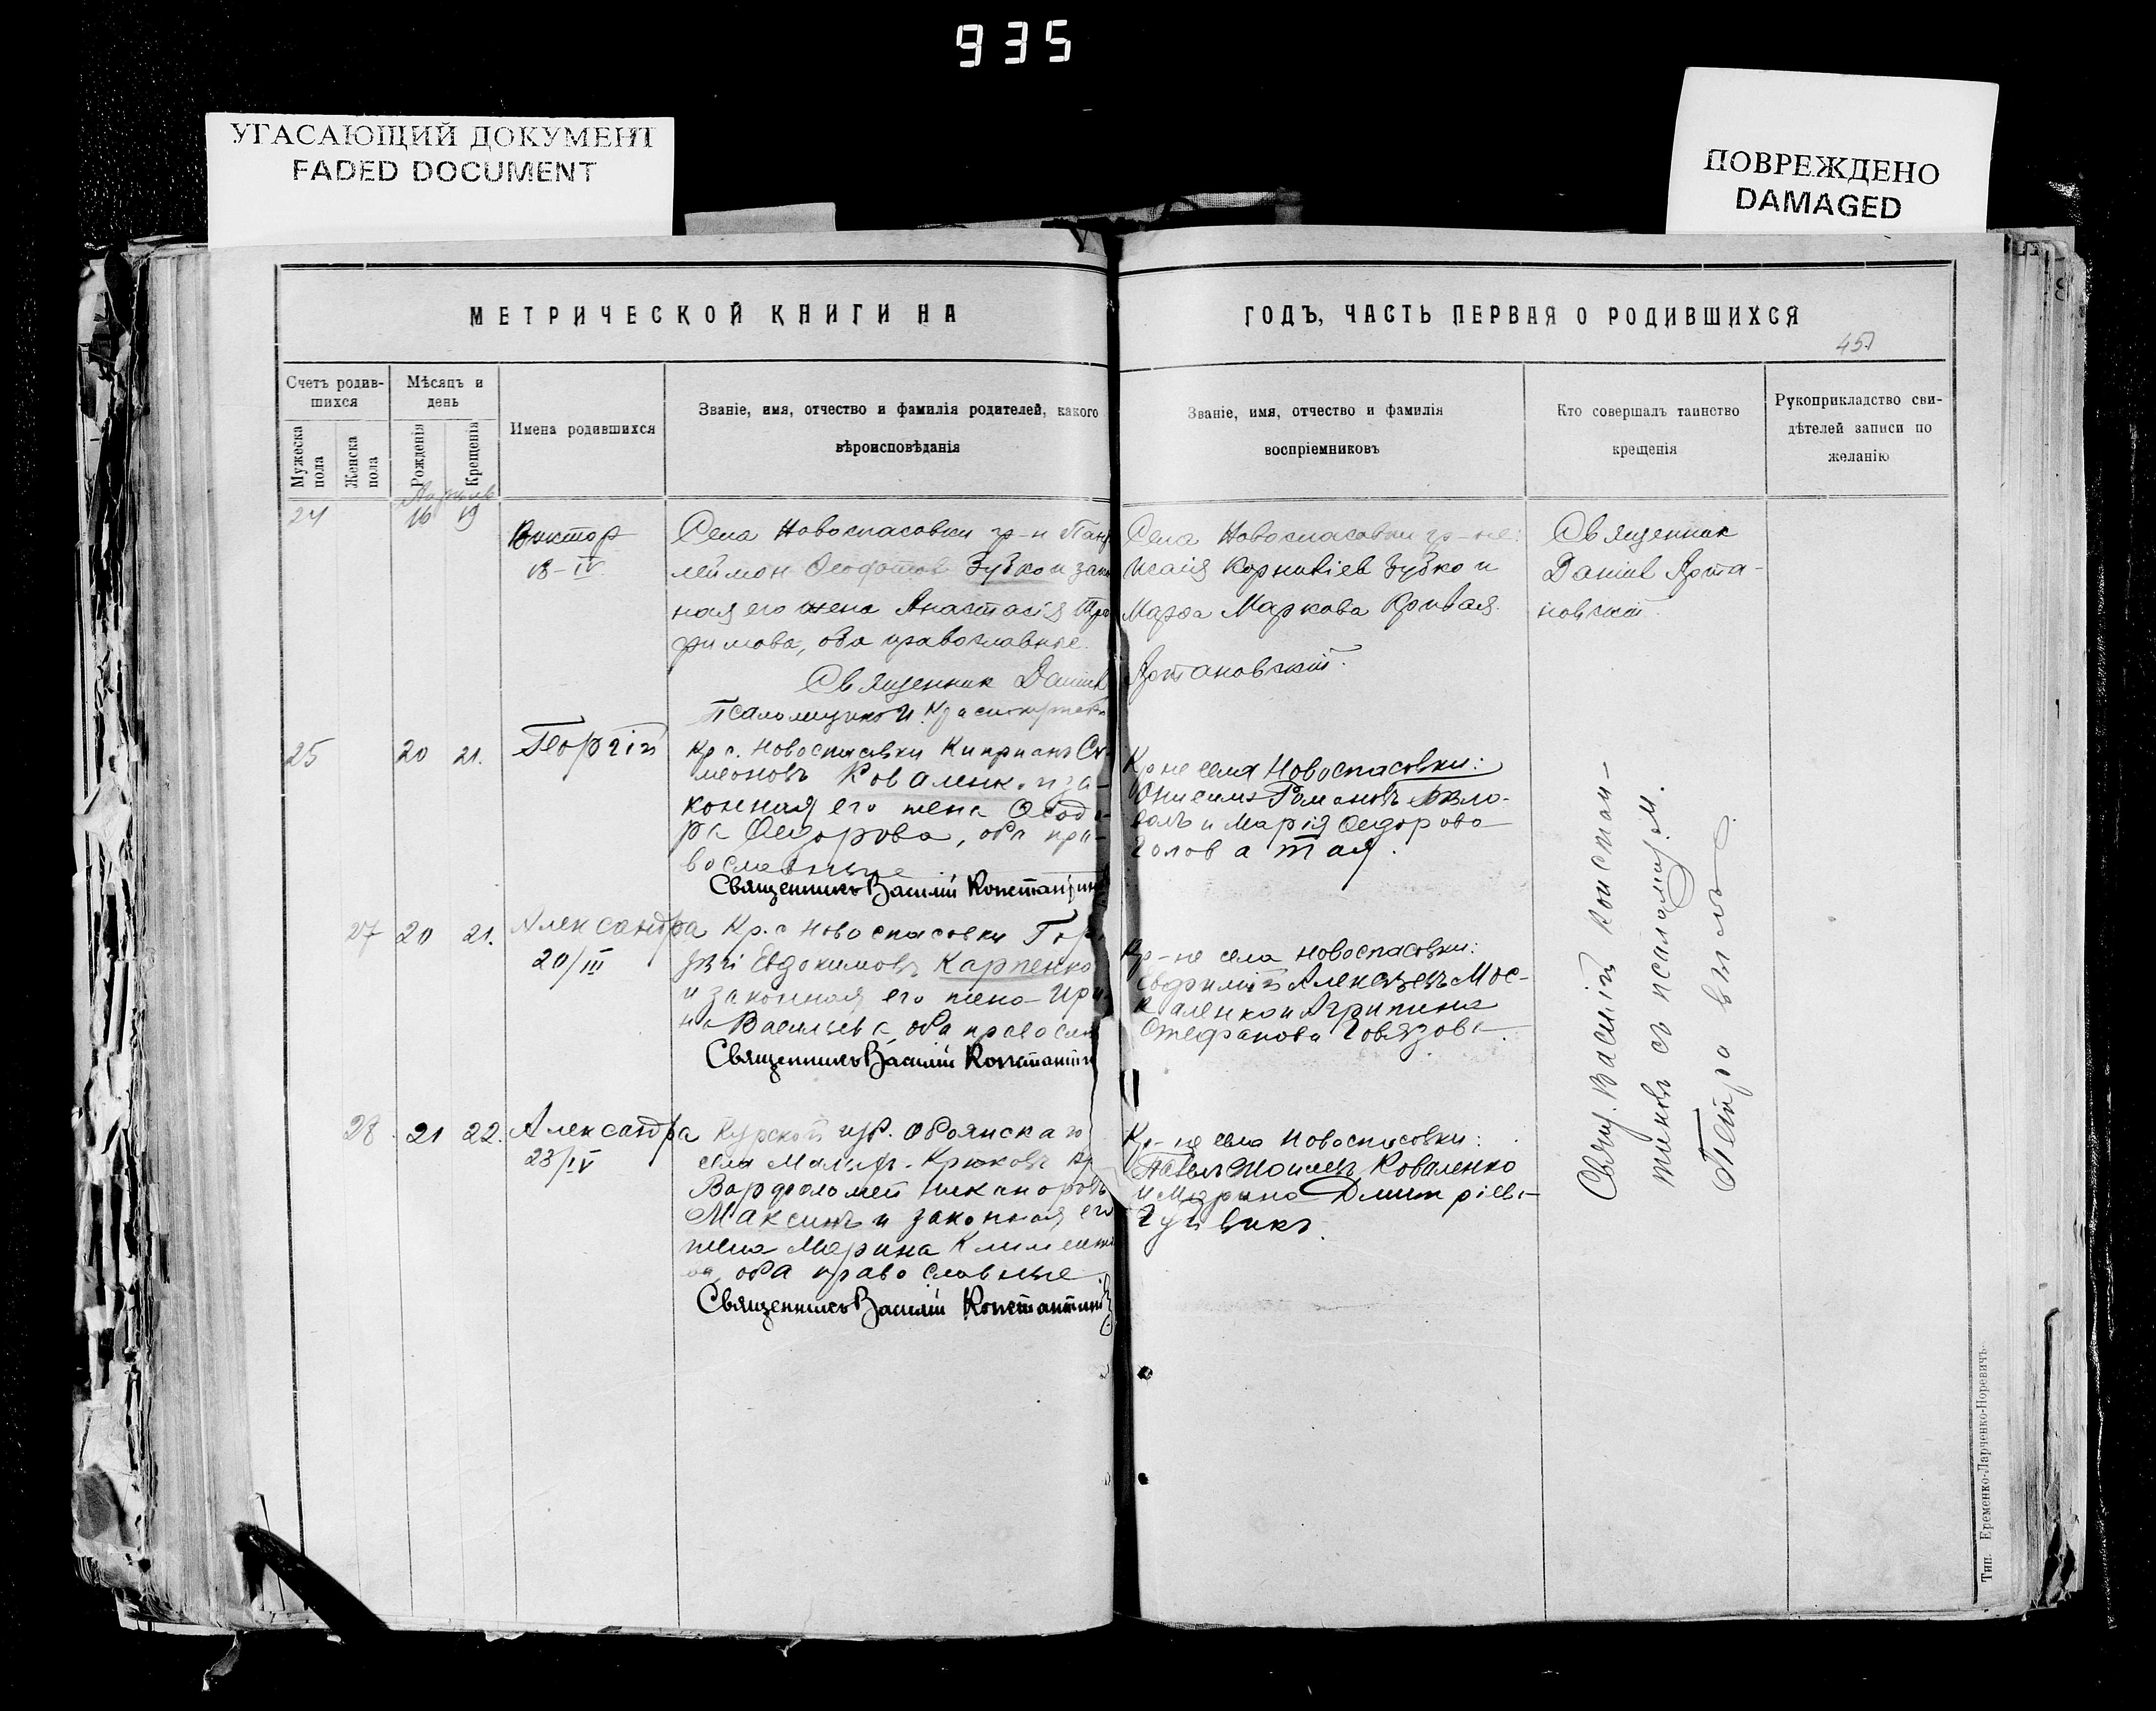 935
УГАСАЮЩИЙ ДОКУМЕНТ
FADED DOCUMENT
ПОВРЕЖДЕНО
DAMAGED
МЕТРИЧЕСКОЙ КНИГИ НА
ГОДЪ, ЧАСТЬ ПЕРВАЯ О РОДИВШИХСЯ
Счетъ родив-
шихся
Мужеска
пола
Женска
пола
Мѣсяцъ и
день
Рожденія
Крещенія
Имена родившихся
Званіе, имя, отчество и фамилія родителей, какого
вѣроисповѣданія
Званіе, имя, отчество и фамилія
воспріемниковъ
Кто совершалъ таинство
крещенія
Рукоприкладство сви-
дѣтелей записи по
желанію
24
16 19
Виктор
18-IV
Села Новоспасовки гр-н Пан
леймон Феодотов Зубко и зак
ная его жена Анастасія Тро
фимова, оба православные.
Священник Даниил
Села Новоспасовки гр-не:
Исаія Корниліев Зубко и
Марфа Маркова Кривая.
Артановскій.
Священник
Даниил Арта-
новскій
25
20 21.
Георгій
Кр. с. Новоспасовки Кипріанъ Си
меоновъ Коваленко и за-
конная его жена Феодо-
ра Федорова, оба пра-
вославные
Священникъ Василій Константин
Кр-не села Новоспасовки:
Онисимъ Романовъ
и Марія Федорова
Головатая.
27
20 21.
Александра
20/III
Кр. с Новоспасовки
Евдокимовъ Карпенко
и законная его жена Ири
на Васильева оба православ
Священникъ Василій Константин
Кр-не села Новоспасовки:
Евфимій Алексѣевъ Мос-
каленко и Агрипина
Стефанова
28
21 22.
Александра
23/IV
Курской губ. Обоянскаго
села Крюковъ кр
Варфоломей Никаноровъ
Максимъ и законная его
жена Марина Климент
ва, оба православные
Священникъ Василій Константинов
Кр-не села Новоспасовки:
Павелъ Коваленко
и Марина Дмитріева
Свящ. Василій Констан-
тиновъ съ псаломщ. М.
Тип. Еременко-Ларченко-Норевичъ.